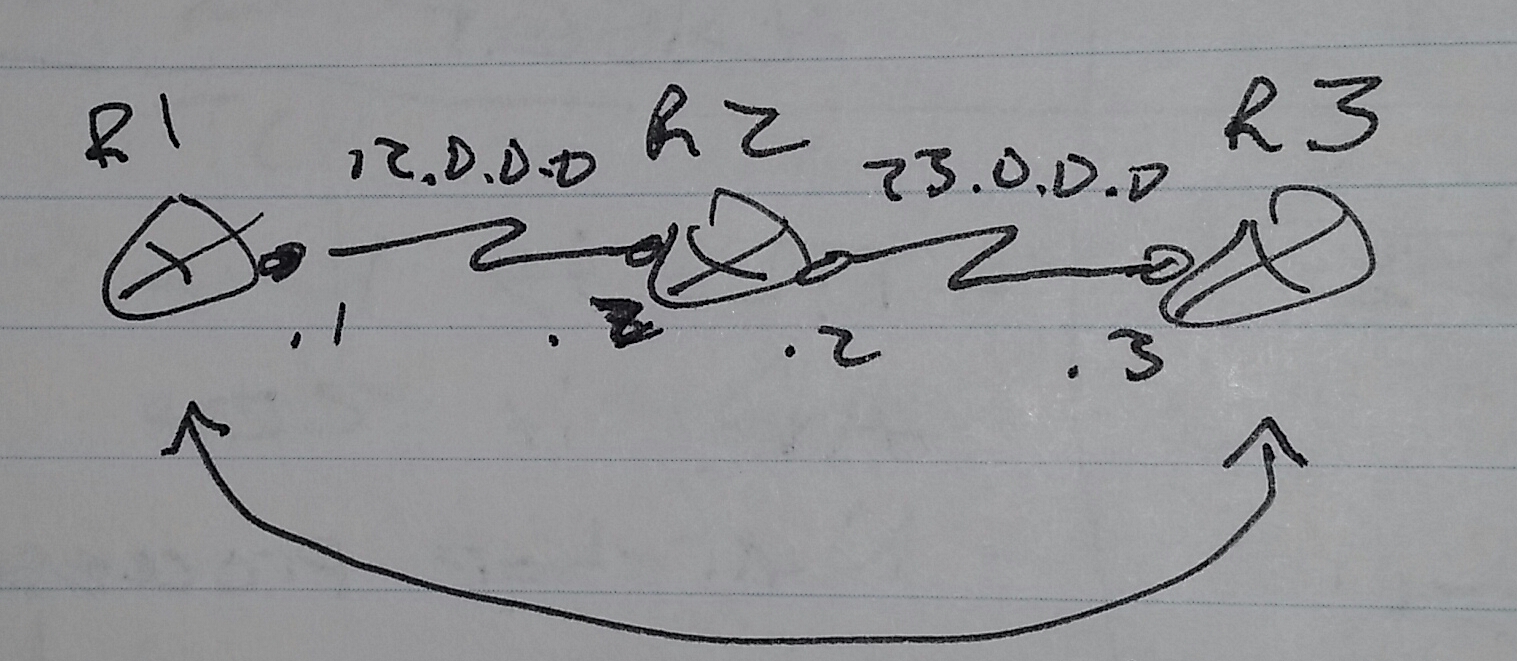 R1 12.0.0.0 R2 23.0.0.0 R3
.1 .2 .2 .3